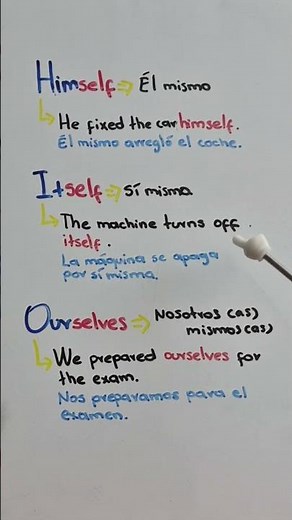 Himself => Él mismo
He fixed the car himself.
Él mismo arregló el coche.
Itself => Sí misma
The machine turns off
itself.
La máquina se apaga
por sí misma.
Ourselves => Nosotros(as)
mismos(as)
We prepared ourselves for
the exam.
Nos preparamos para el
examen.